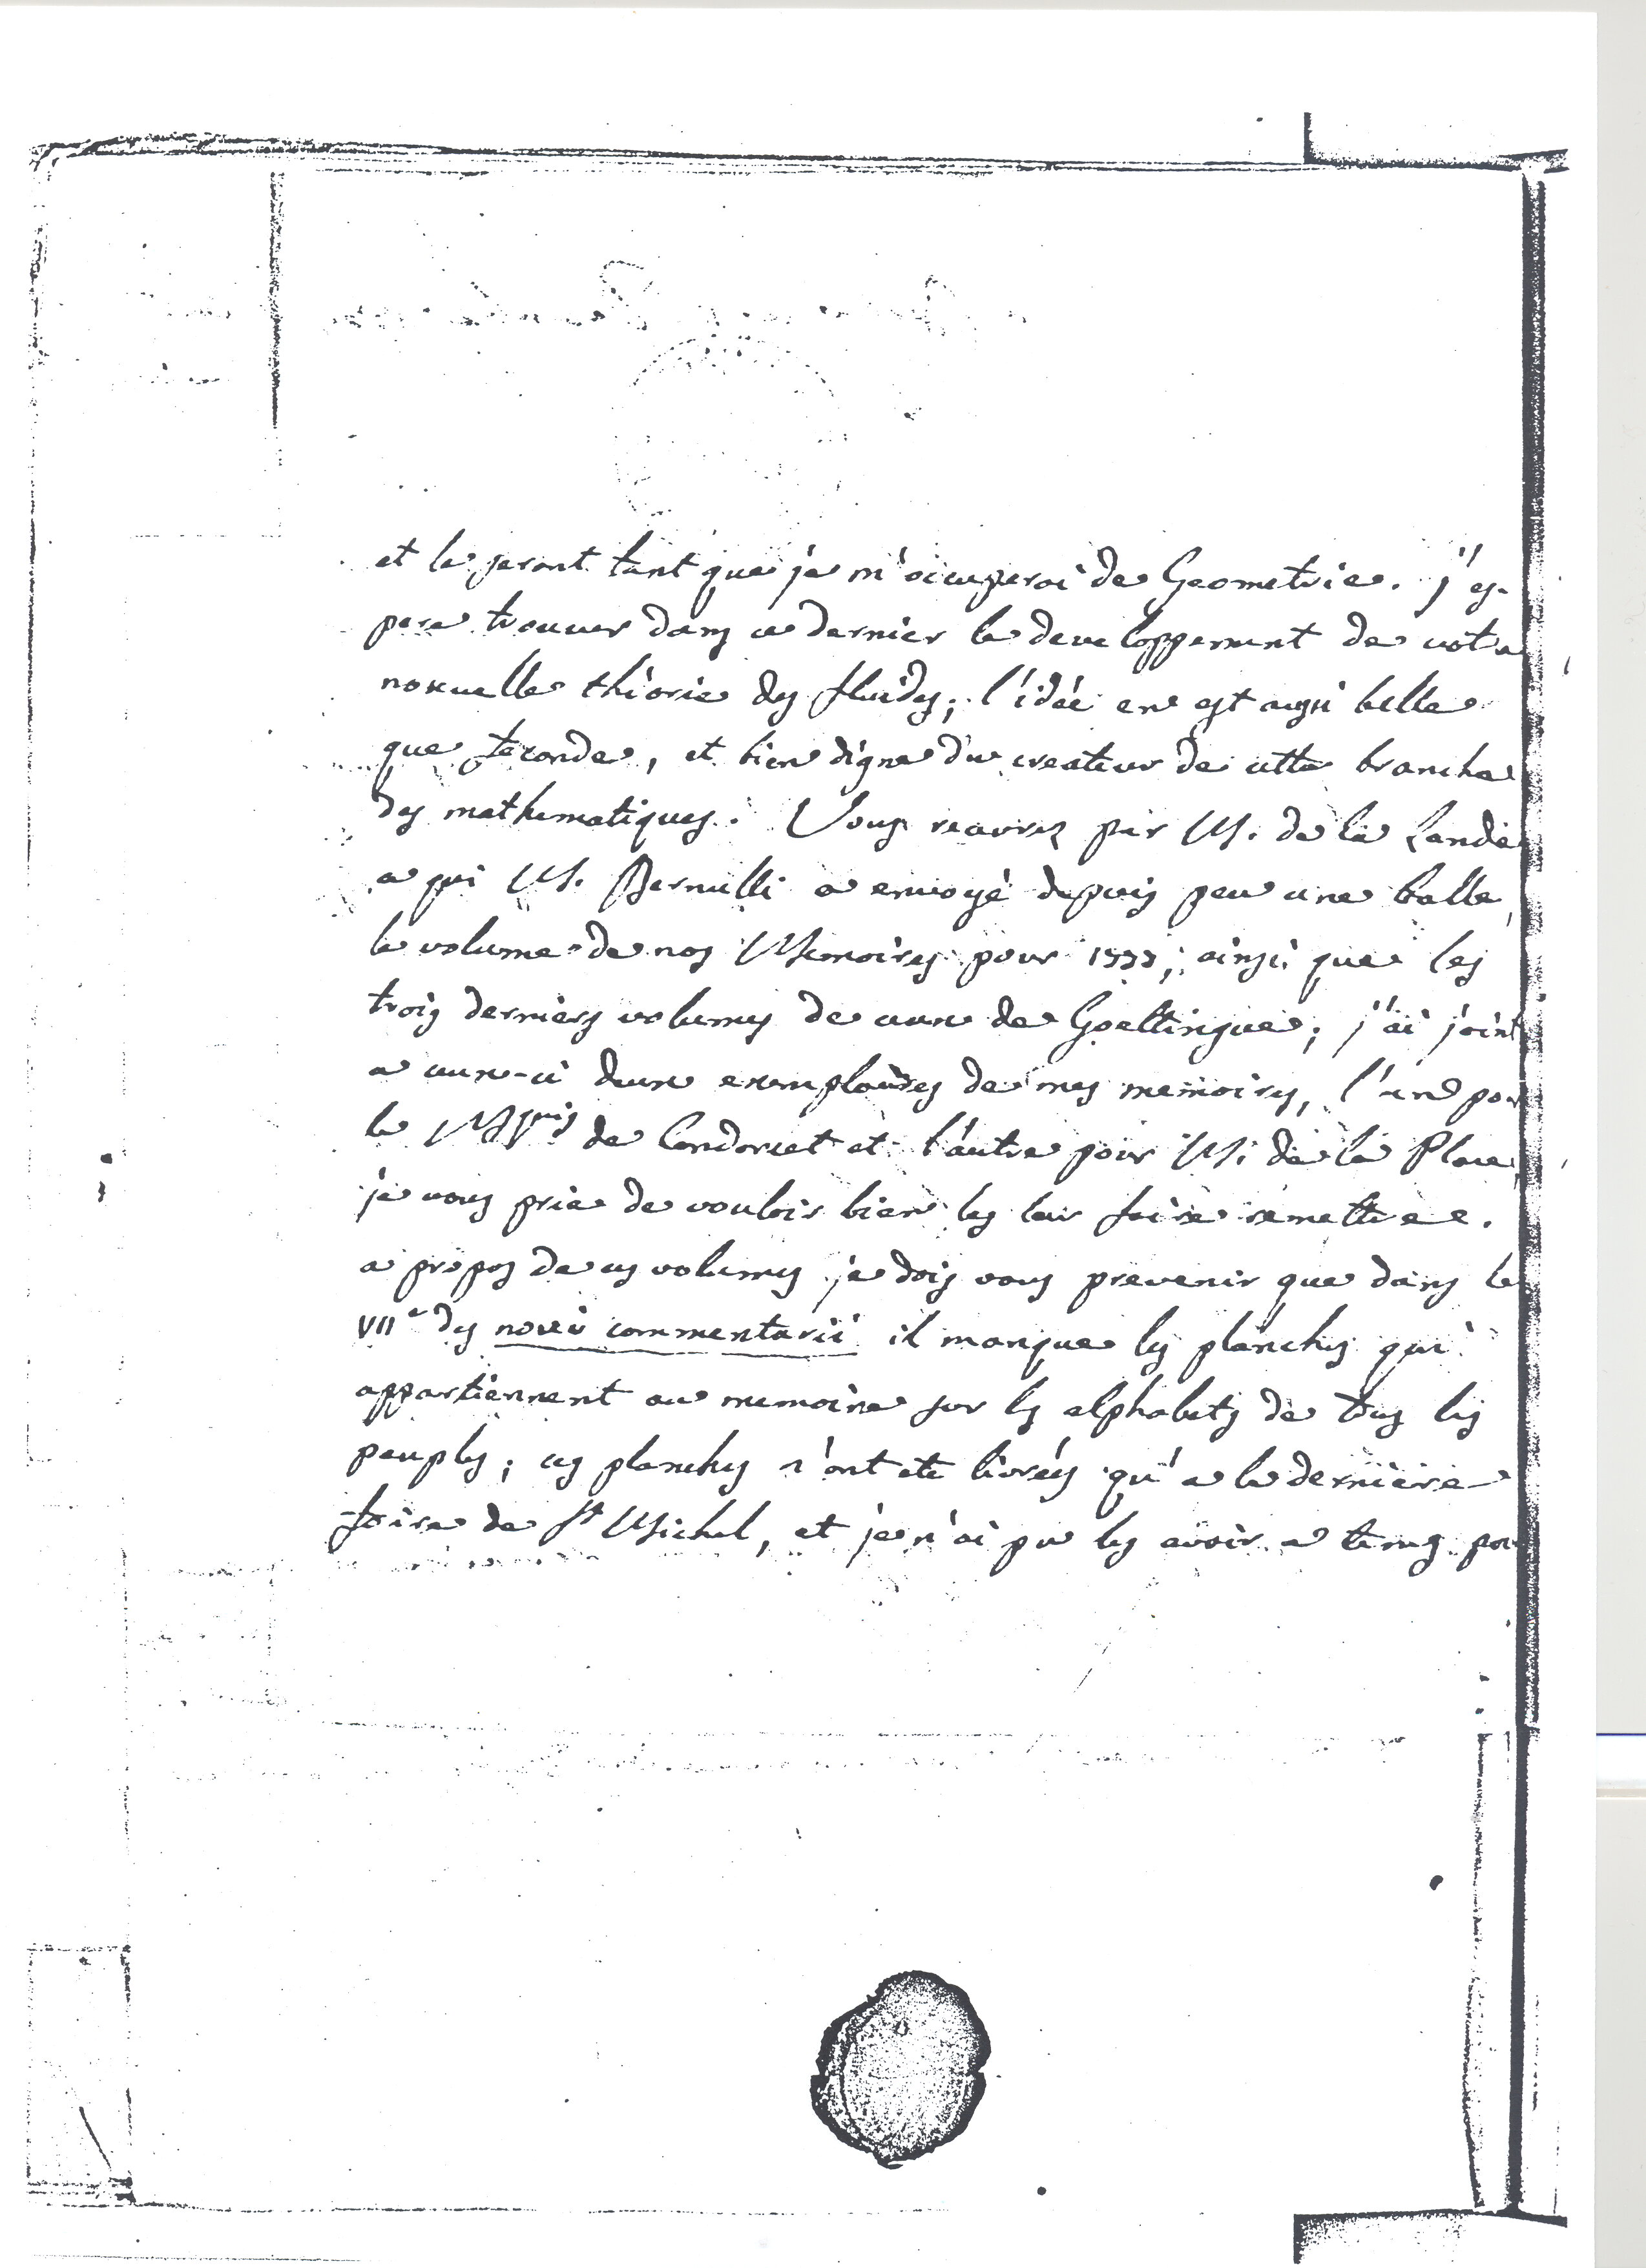 et le seront tant que je m'occuperai de Geometrie. J'es-
pere trouver dans ce dernier le developpement de votre
nouvelle théorie des fluides; l'idée en est aussi belle
que feconde, et bien digne du createur de cette branche
des mathematiques. Vous recevrez par M. de la Lande
a qui M. Bernulli a envoyé depuis peu une balle,
le volume de nos Memoires pour 1777; ainsi que les
trois derniers volumes de ceux de Goettingue; j'ai joint
a ceux-ci deux exemplaires de mes memoires, l'un pour
le Mquis de Condorcet et l'autre pour M. de la Place,
je vous prie de vouloir bien les leur faire remettre.
a propos de ces volumes je dois vous prevenir que dans le
VIIe des novi commentarii il manque les planches qui
appartiennent au memoire sur les alphabets de tous les
peuples; ces planches n'ont ete livrées qu'a la derniere
foire de St Michel, et je n'ai pu les avoir a tems pour